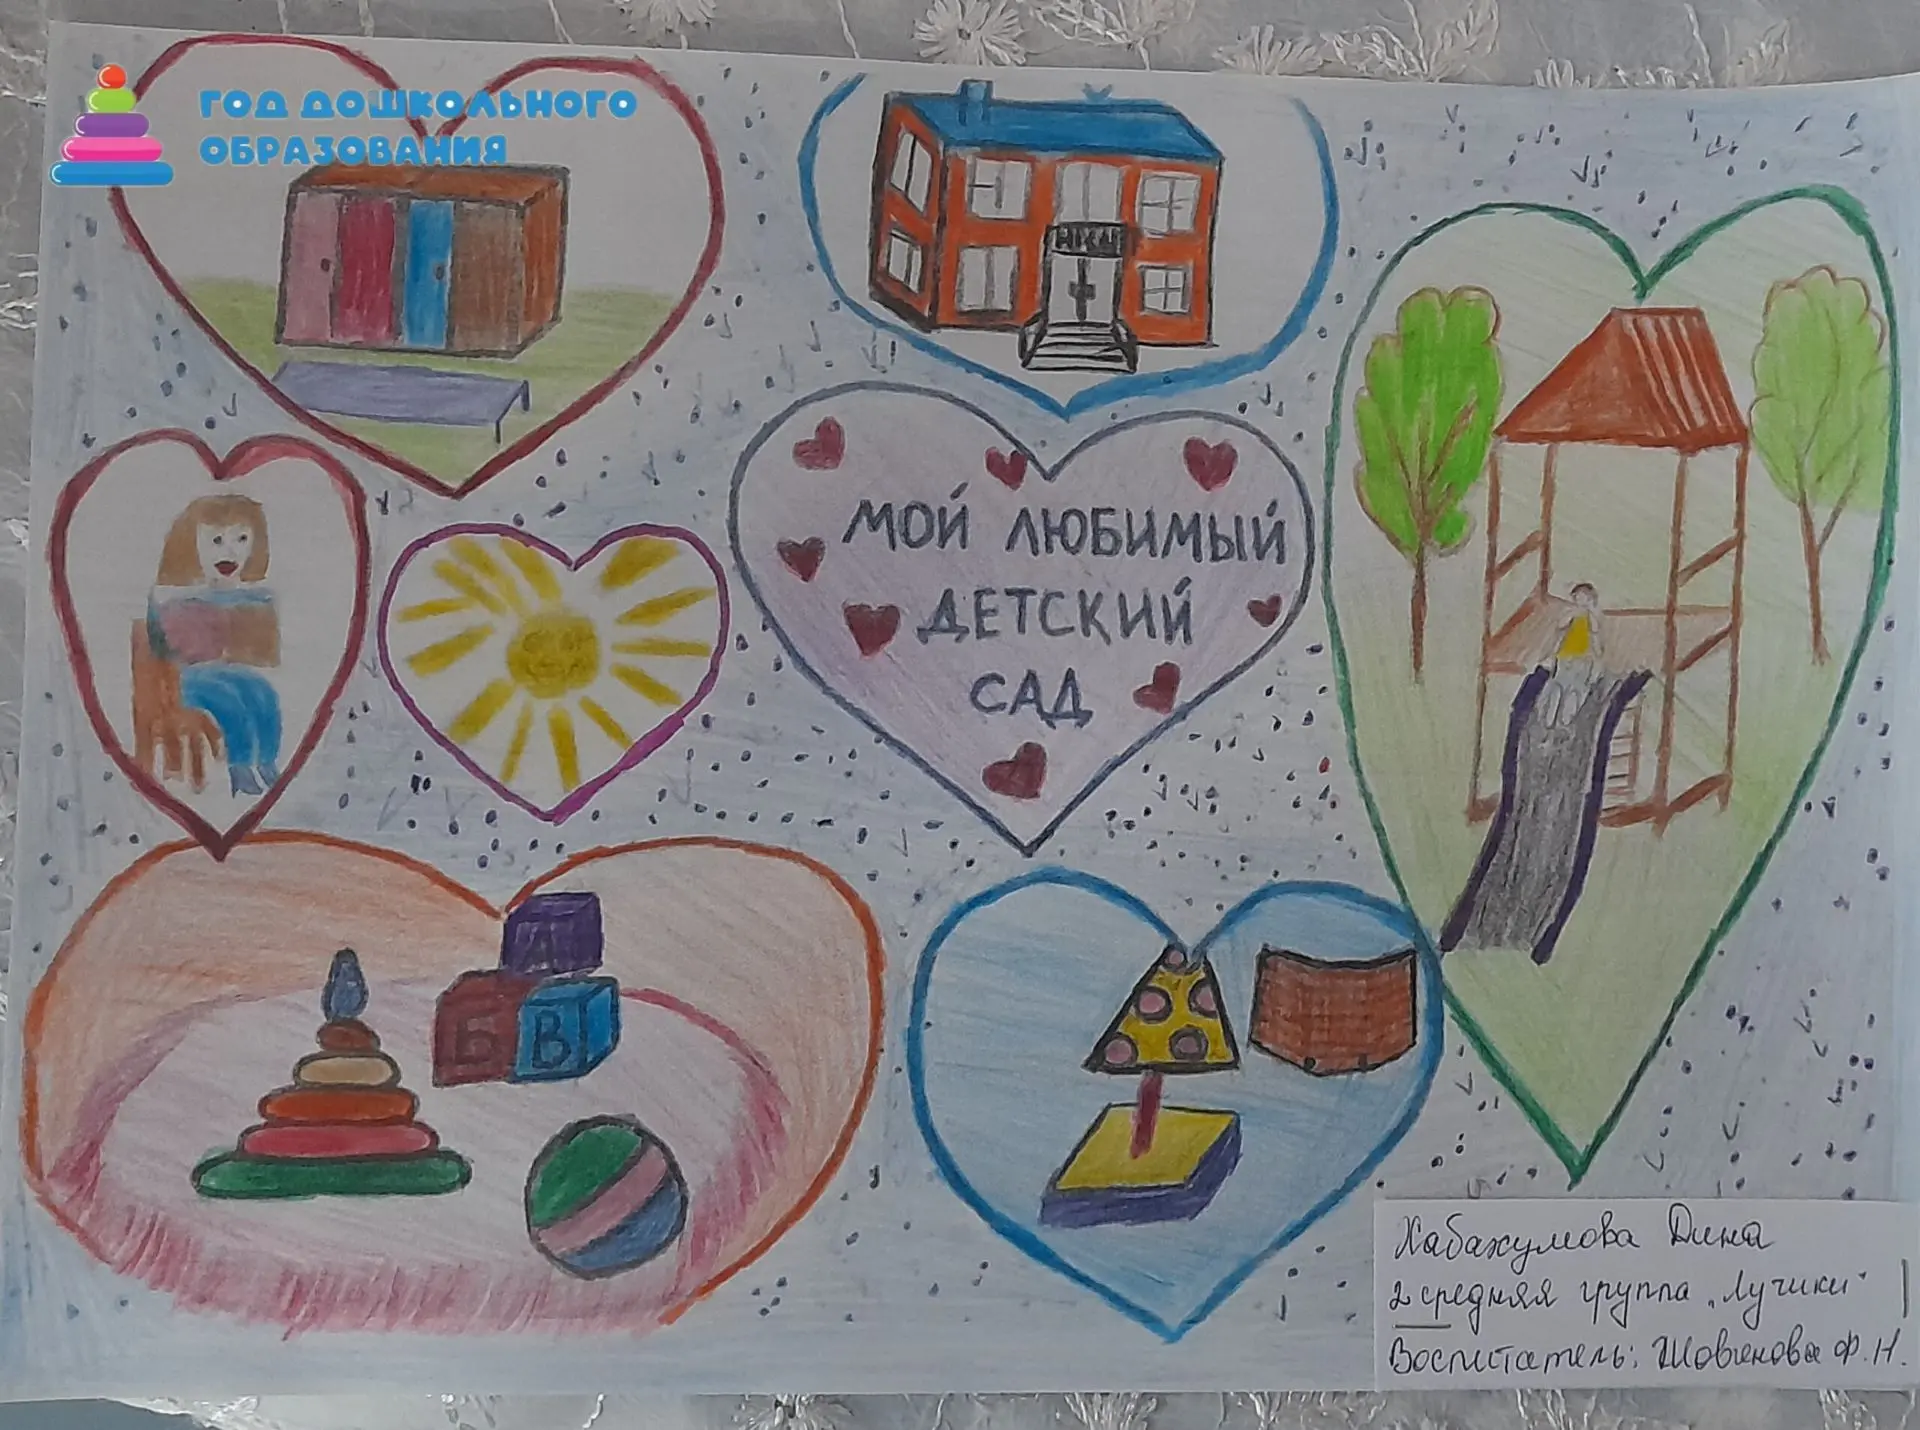 ГОД ДОШКОЛЬНОГО
ОБРАЗОВАНИЯ
МОЙ ЛЮБИМЫЙ
ДЕТСКИЙ
САД
А
Б В
Хабахумова Дина
2 средняя группа "Лучики"
Воспитатель: Шовгенова Ф.Н.